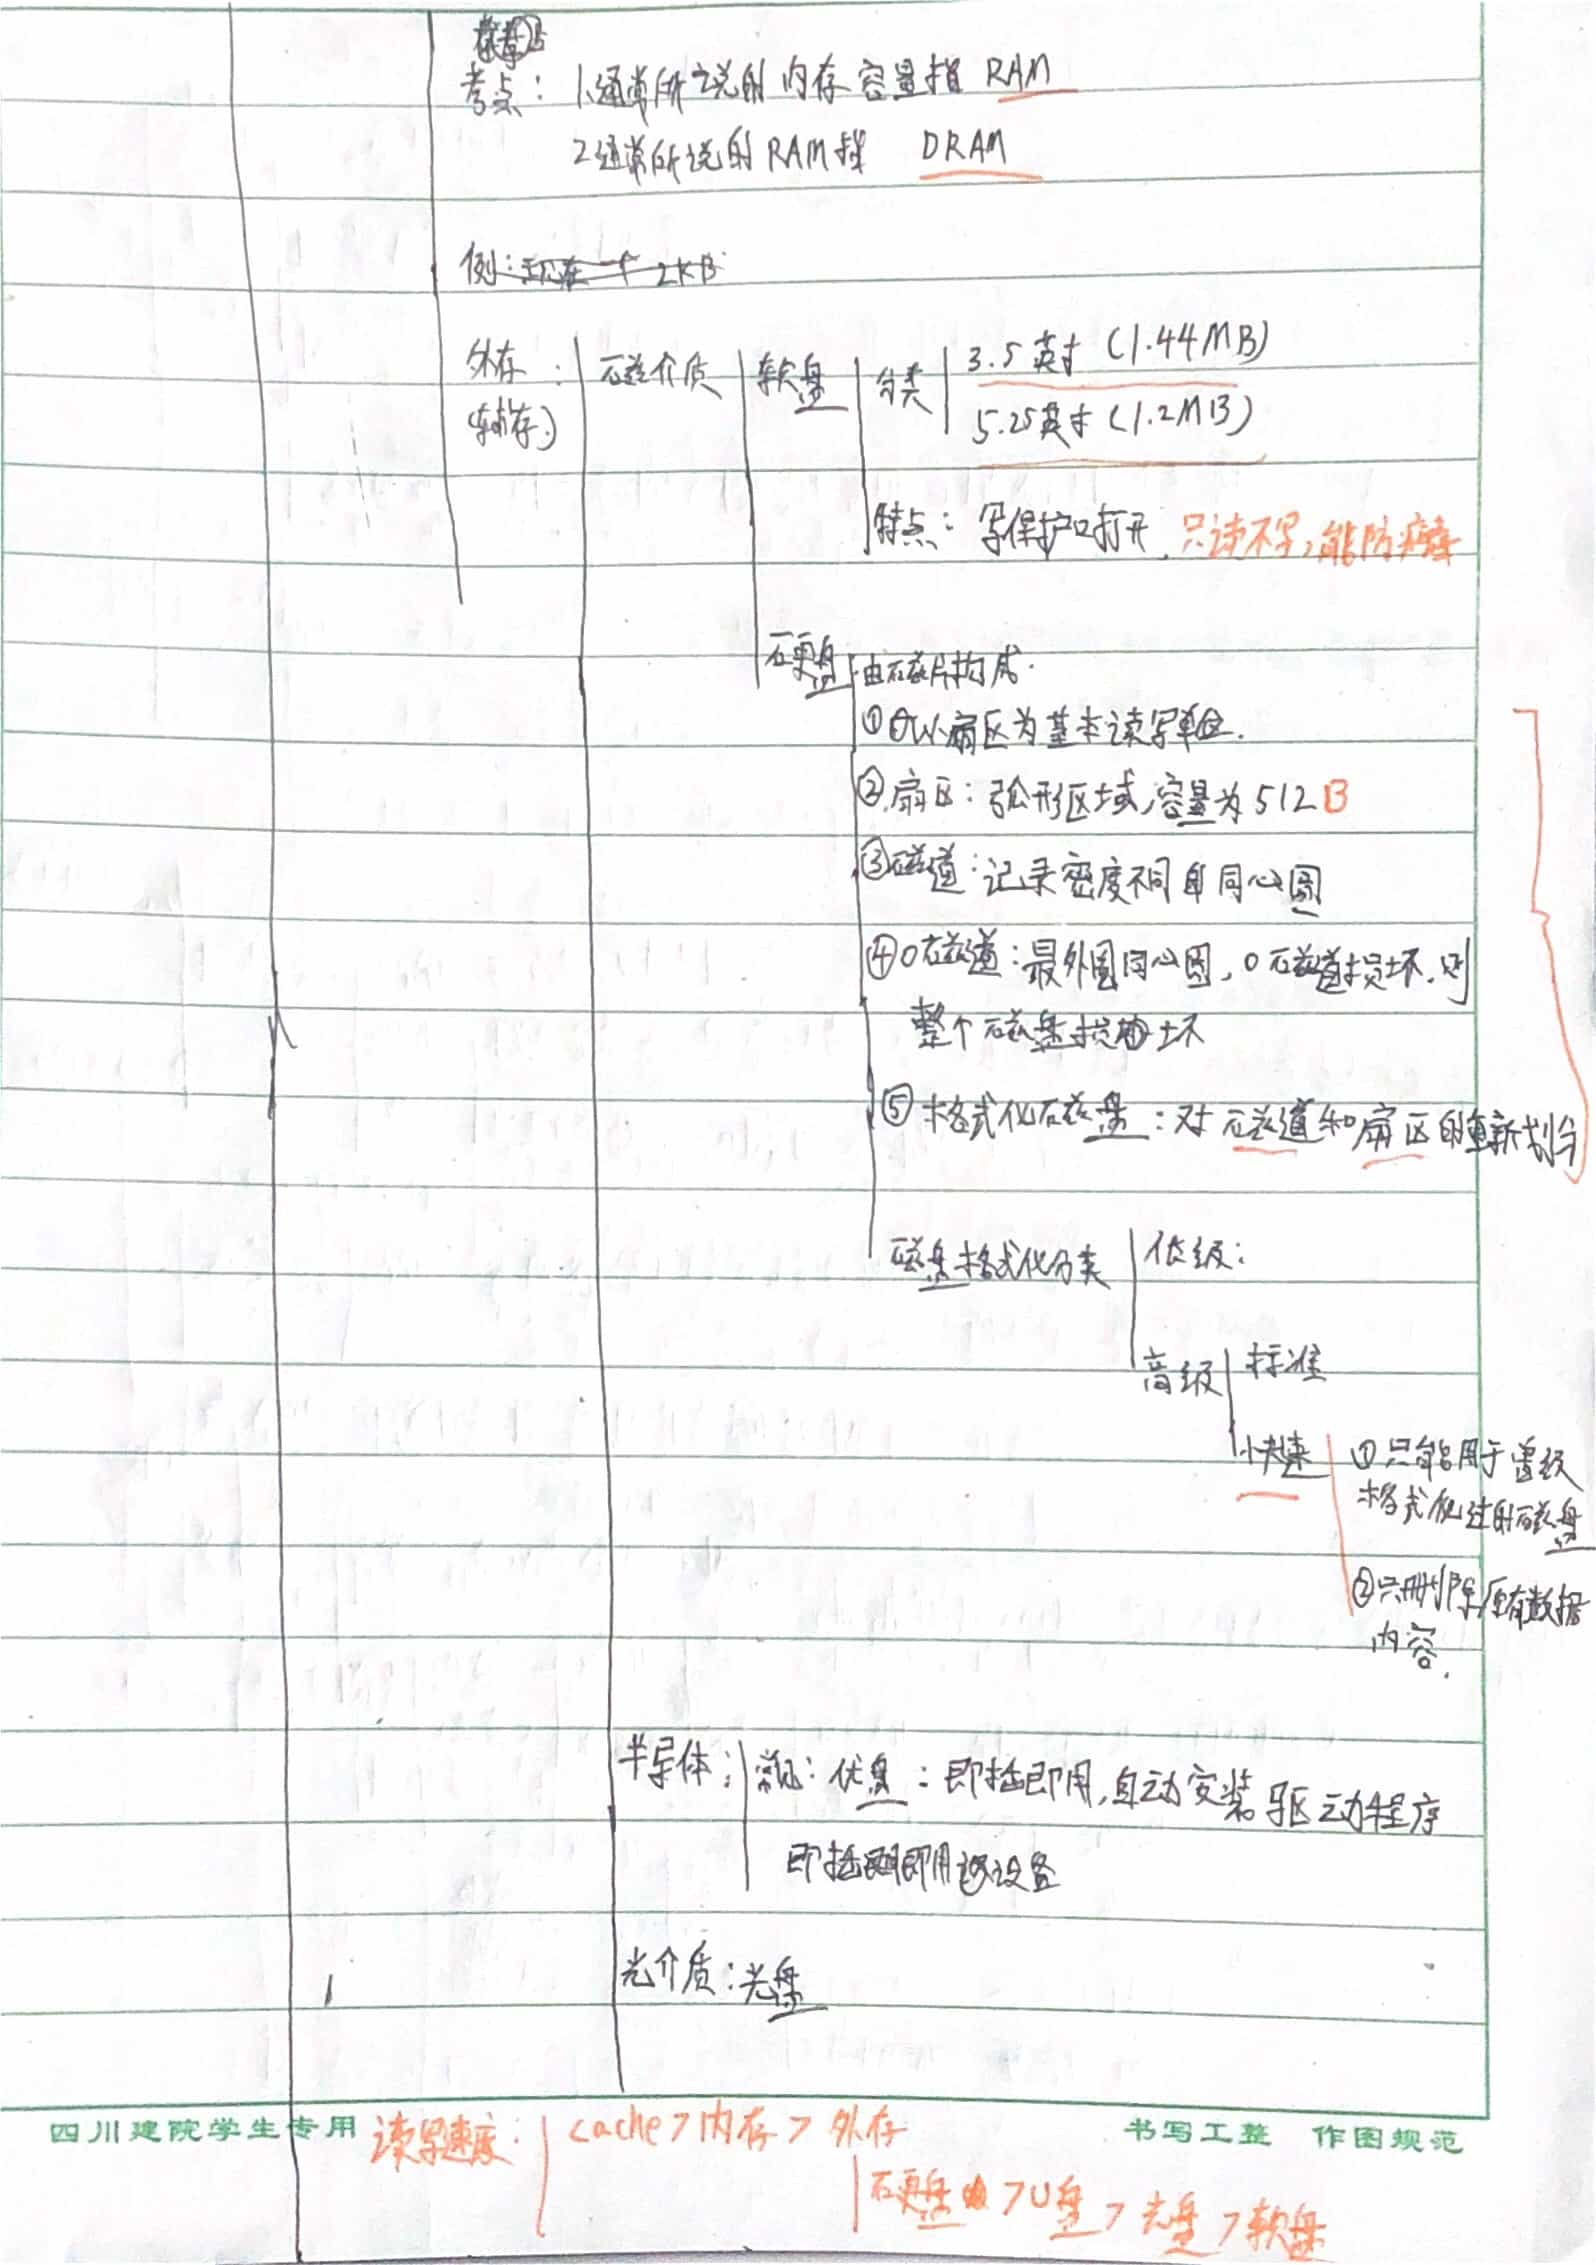 考点：1.通常所说的内存容量指 RAM
2通常所说的RAM指 DRAM
例：现在一个 2KB
外存：
(辅存)
磁介质
软盘
分类
3.5英寸 (1.44MB)
5.25英寸 (1.2MB)
特点：写保护口打开，只读不写，能防病毒
硬盘
由磁片构成.
①以扇区为基本读写单位.
②扇区：弧形区域，容量为512B
③磁道：记录密度不同的同心圆
④0磁道：最外围同心圆，0磁道损坏，则
整个磁盘损坏
⑤格式化磁盘：对磁道和扇区的重新划分
磁盘格式化分类
低级：
高级
标准
快速
①只能用于曾经
格式化过的磁盘
②只删除原有数据
内容.
半导体：
常见：优盘：即插即用，自动安装驱动程序
即插即用设备
光介质：光盘
四川建院学生专用
书写工整 作图规范
读写速度：
cache>内存>外存
硬盘>U盘>光盘>软盘